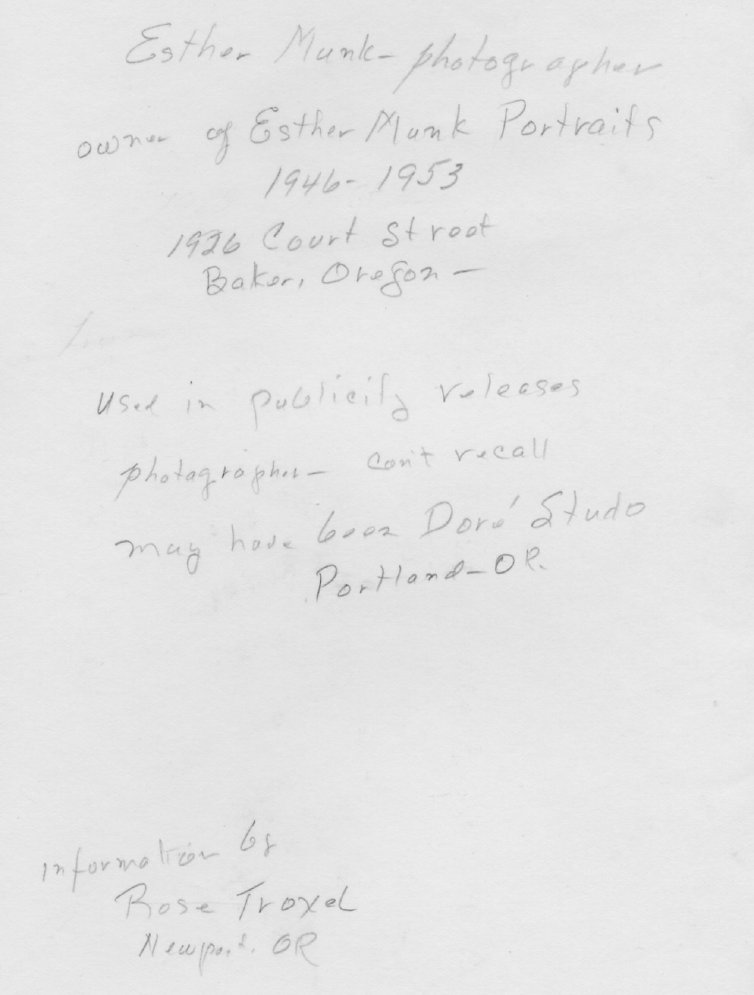 Esther Munk - photographer
owner of Esther Munk Portraits
1946 - 1953
1926 Court Street
Baker, Oregon -
Used in publicity releases
photographer - can't recall
may have been Doré Studo
Portland - OR.
information by
Rose Troxel
Newport, OR